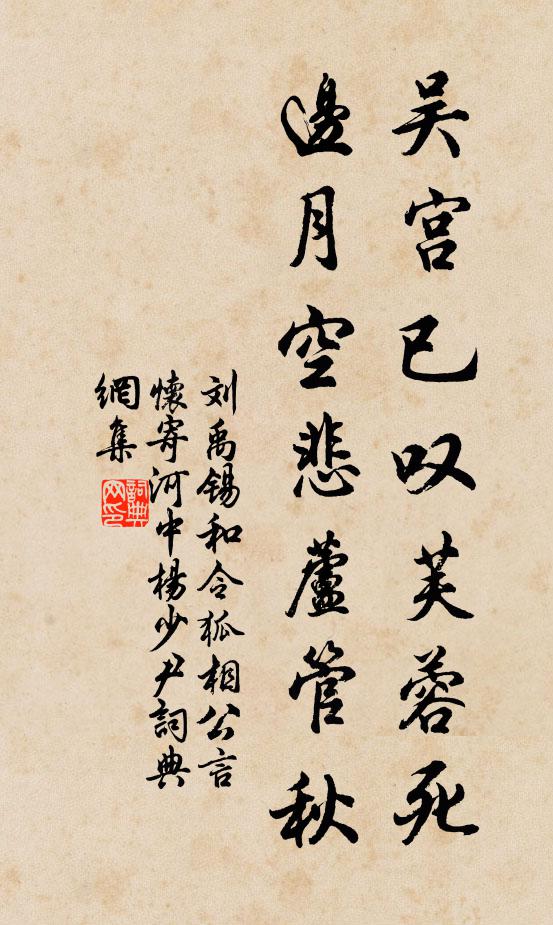 吴宫已叹芙蓉死
邊月空悲蘆管秋
刘禹锡和令狐相公言
懷寄河中楊少尹詞典
網集
詞典
网印